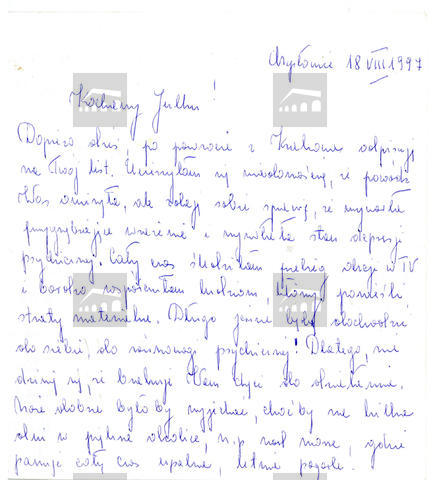 Mysłowice 18 VIII 1997
Kochany Julku!
Dopiero dziś, po powrocie z Krakowa odpisuję
na Twój list. Ucieszyłam się wiadomością, że powódź
Was ominęła, ale zdaję sobie sprawę, że wywarła
przygnębiające wrażenie i wywołała stan depresji
psychicznej. Cały czas śledziłam przebieg akcji w TV
i bardzo współczułam ludziom, którzy ponieśli
straty materialne. Długo jeszcze będą dochodzić
do siebie, do równowagi psychicznej! Dlatego, nie
dziwię się, że brakuje Wam chęci do działania.
Może dobrze byłoby wyjechać, choćby na kilka
dni w piękne okolice, n.p. nad morze, gdzie
panuje cały czas upalna, letnia pogoda.